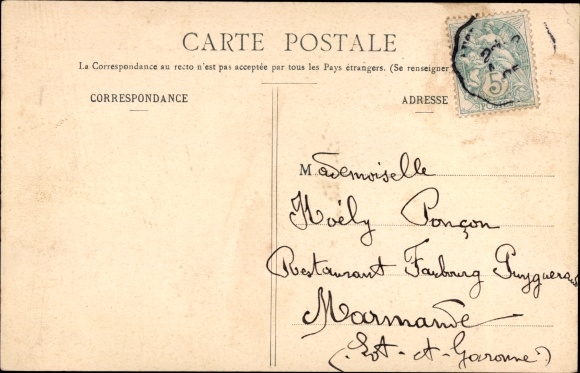 CARTE POSTALE
La Correspondance au recto n'est pas acceptée par tous les Pays étrangers. (Se renseigner
CORRESPONDANCE
ADRESSE
5
Mademoiselle
Noëly Ponçon
Restaurant Faubourg Puyguerau
Marmande
(Lot-et-Garonne)